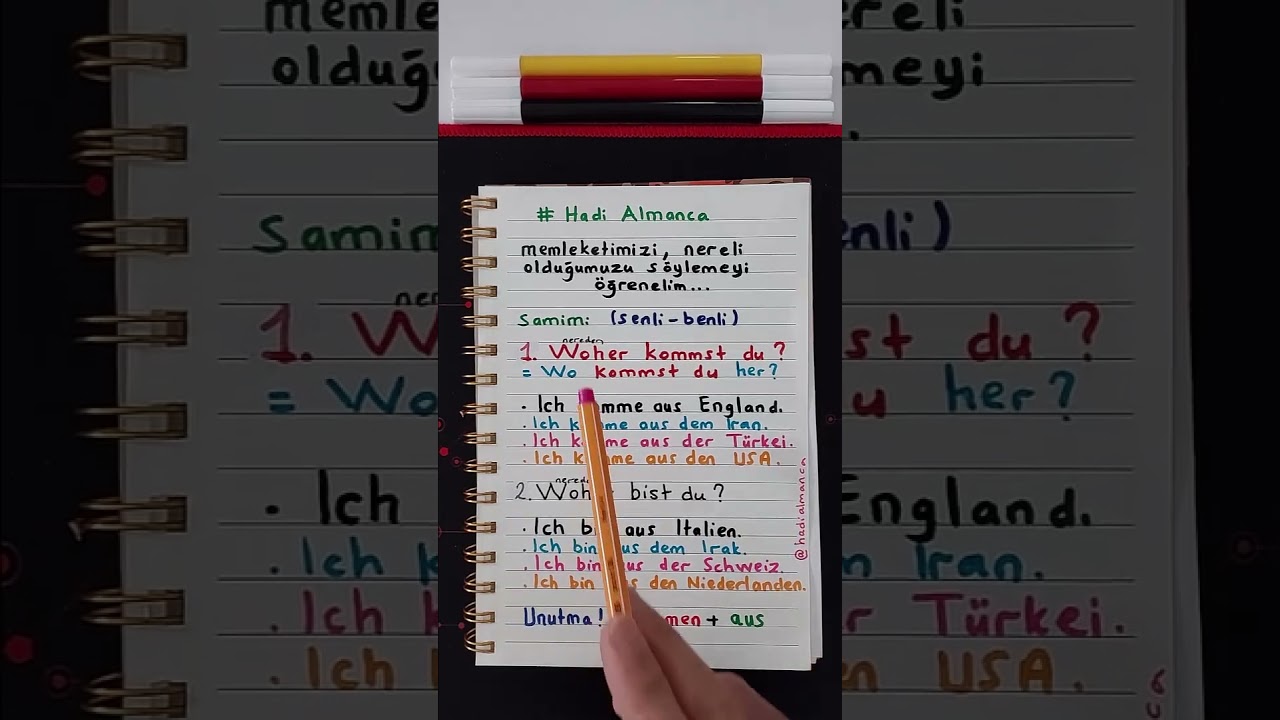 # Hadi Almanca
memleketimizi, nereli
olduğumuzu söylemeyi
öğrenelim...
Samimi (senli-benli)
nereden
1. Woher kommst du?
= Wo kommst du her?
. Ich aus England.
. Ich aus dem Iran.
. Ich aus der Türkei.
. Ich aus den USA.
2. bist du?
. Ich aus Italien.
. Ich bin aus dem Irak.
. Ich bin aus der Schweiz.
. Ich bin den Niederlanden.
Unutma! + aus
@hadialmanca